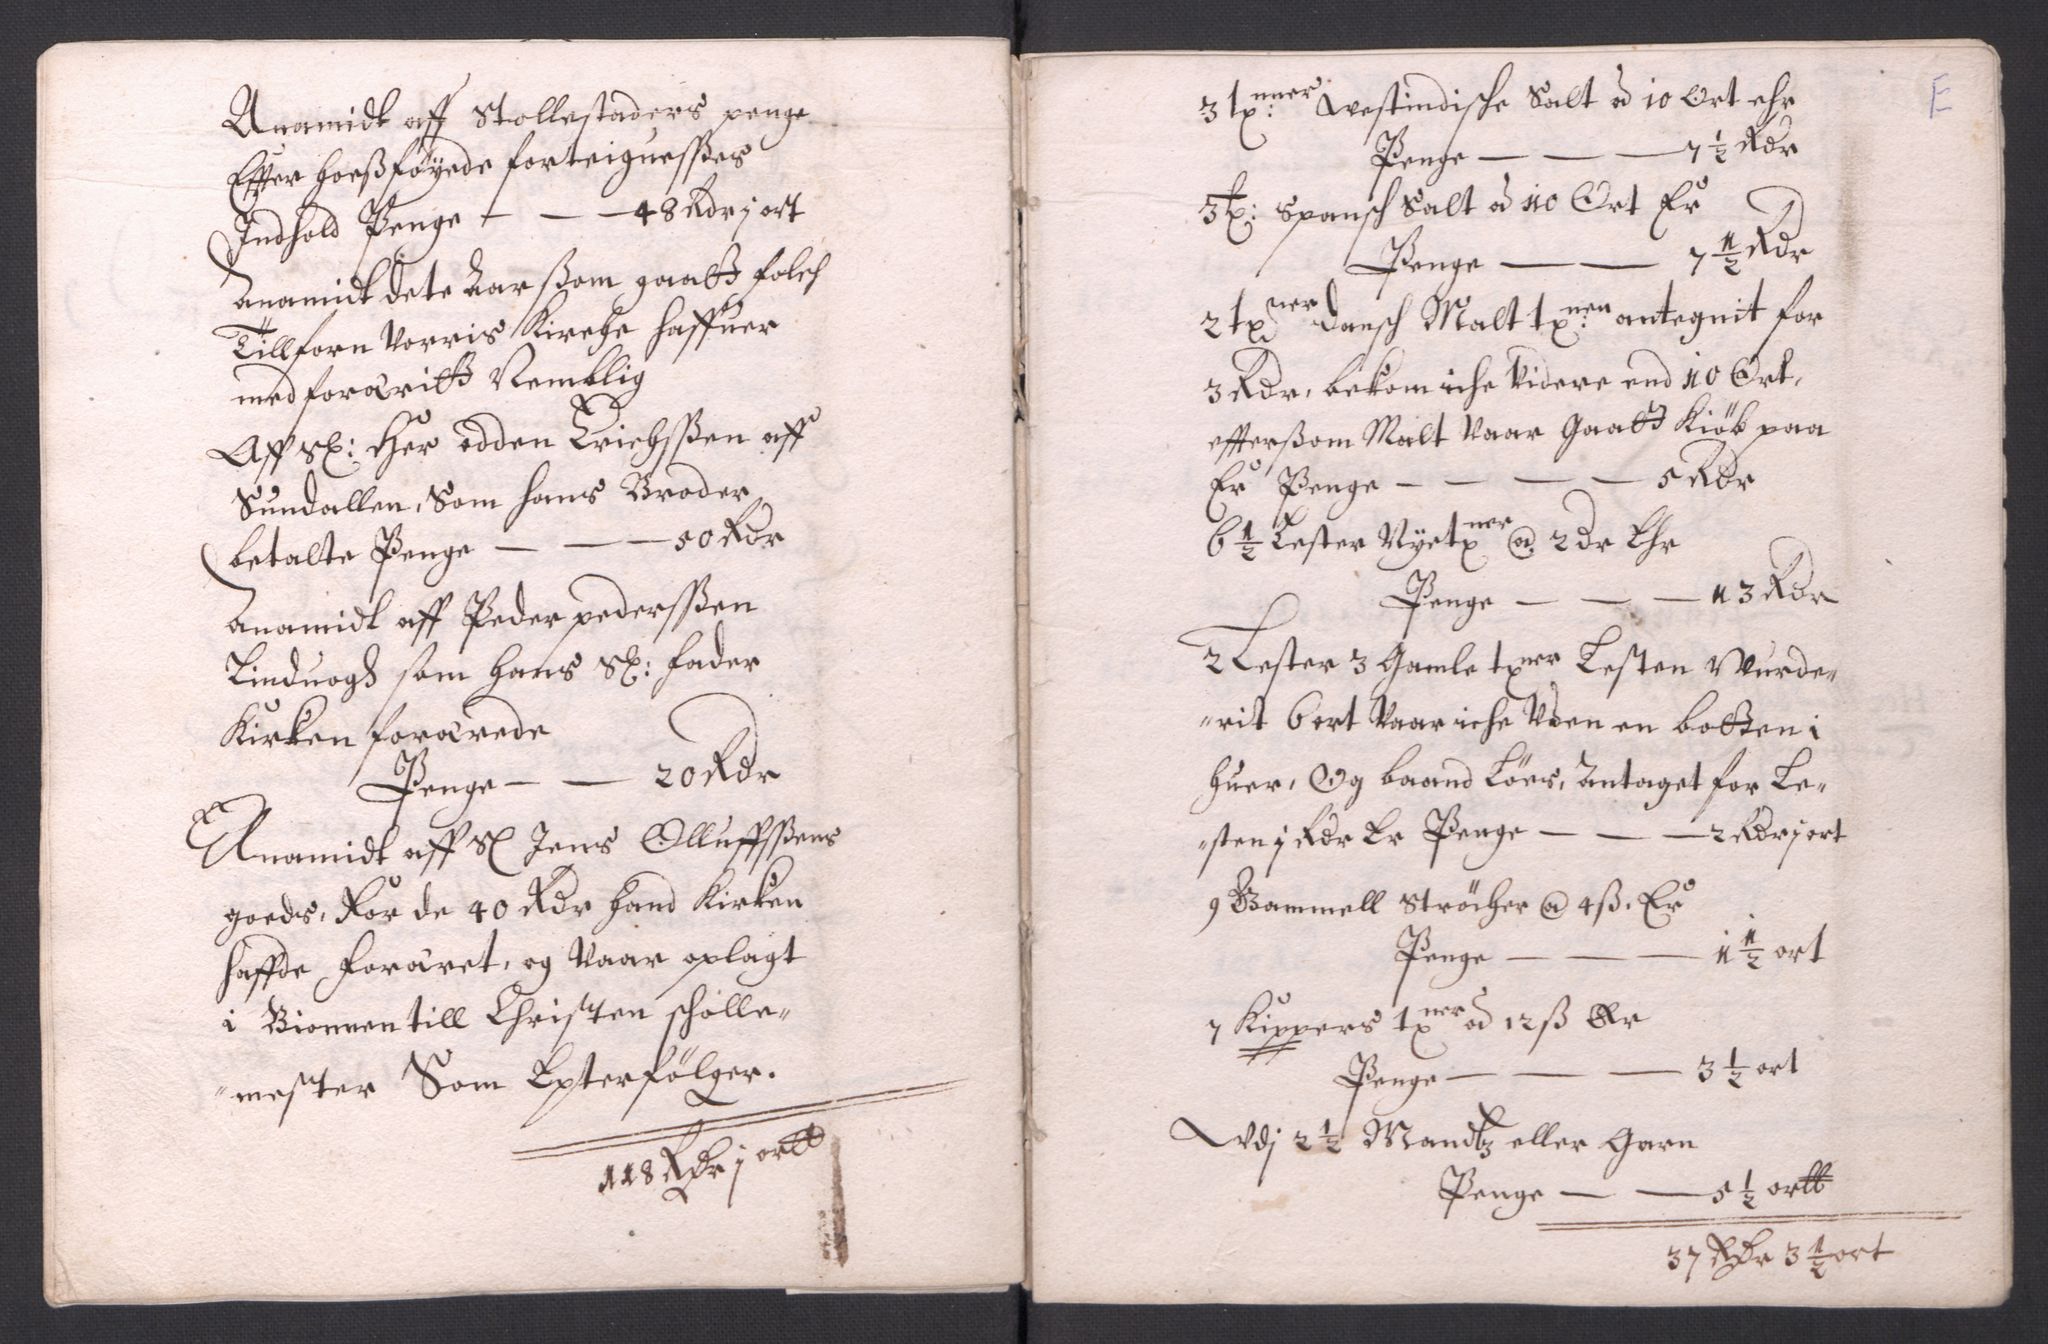 Anamidt aff Stollestaders penge
Effter hoeßføyede forteignelsses
Indhold Penge — — — 48 Rdr j ort
Anamidt dete Aar ßom gaatt folch
Tillforn Vorris Kirche haffuer
med foræritt Nemblig
Aff Sl: Her Odden Erichsßen aff
Sundallen, Som hans Broder
betalte Penge — — — 50 Rdr
Anamidt aff Peder pederssßen
Linduogh som hans Sl: fader
Kirken forærede
Penge — — 20 Rdr
Anamidt aff Sl Jens Olluffsßens
goeds, For de 40 Rdr hand Kirken
haffde foræret, og Vaar oplagt
i Bionnen till Christen scholle„
„mester Som Epterfölger.
118 Rdr j ortt
E
3 tx:nner Westindische Salt ad 10 Ort ehr
Penge — — — 7 1/2 Rdr
3 tx: Spansch Salt ad 10 Ort Er
Penge — — 7 1/2 Rdr
2 txner Dansch Malt tx:nen antegnit for
3 Rdr, bekom iche Videre end 10 Ort,
effterßom Malt Vaar Gaatt Kiöb paa
Er Penge — — — — 5 Rdr
6 1/2 Lester Nye txner @ 2 dr Ehr
Penge — — — 13 Rdr
2 Lester 3 Gamle txner Lesten Wurde„
„rit 6 ort Vaar iche Uden en botten i
huer, Og baand Löes, Antaget for Le„
„sten j Rdr Er Penge — — — 2 Rdr j ort
9 Gammell Ströcher @ 4 ß. Er
Penge — — — 1 1/2 ort
7 Kippers txner ad 12 ß Er
Penge — — — 3 1/2 ort
Udj 2 1/2 Mandtz eller Garn
Penge — — 5 1/2 ortt
37 Rdr 3 1/2 ort